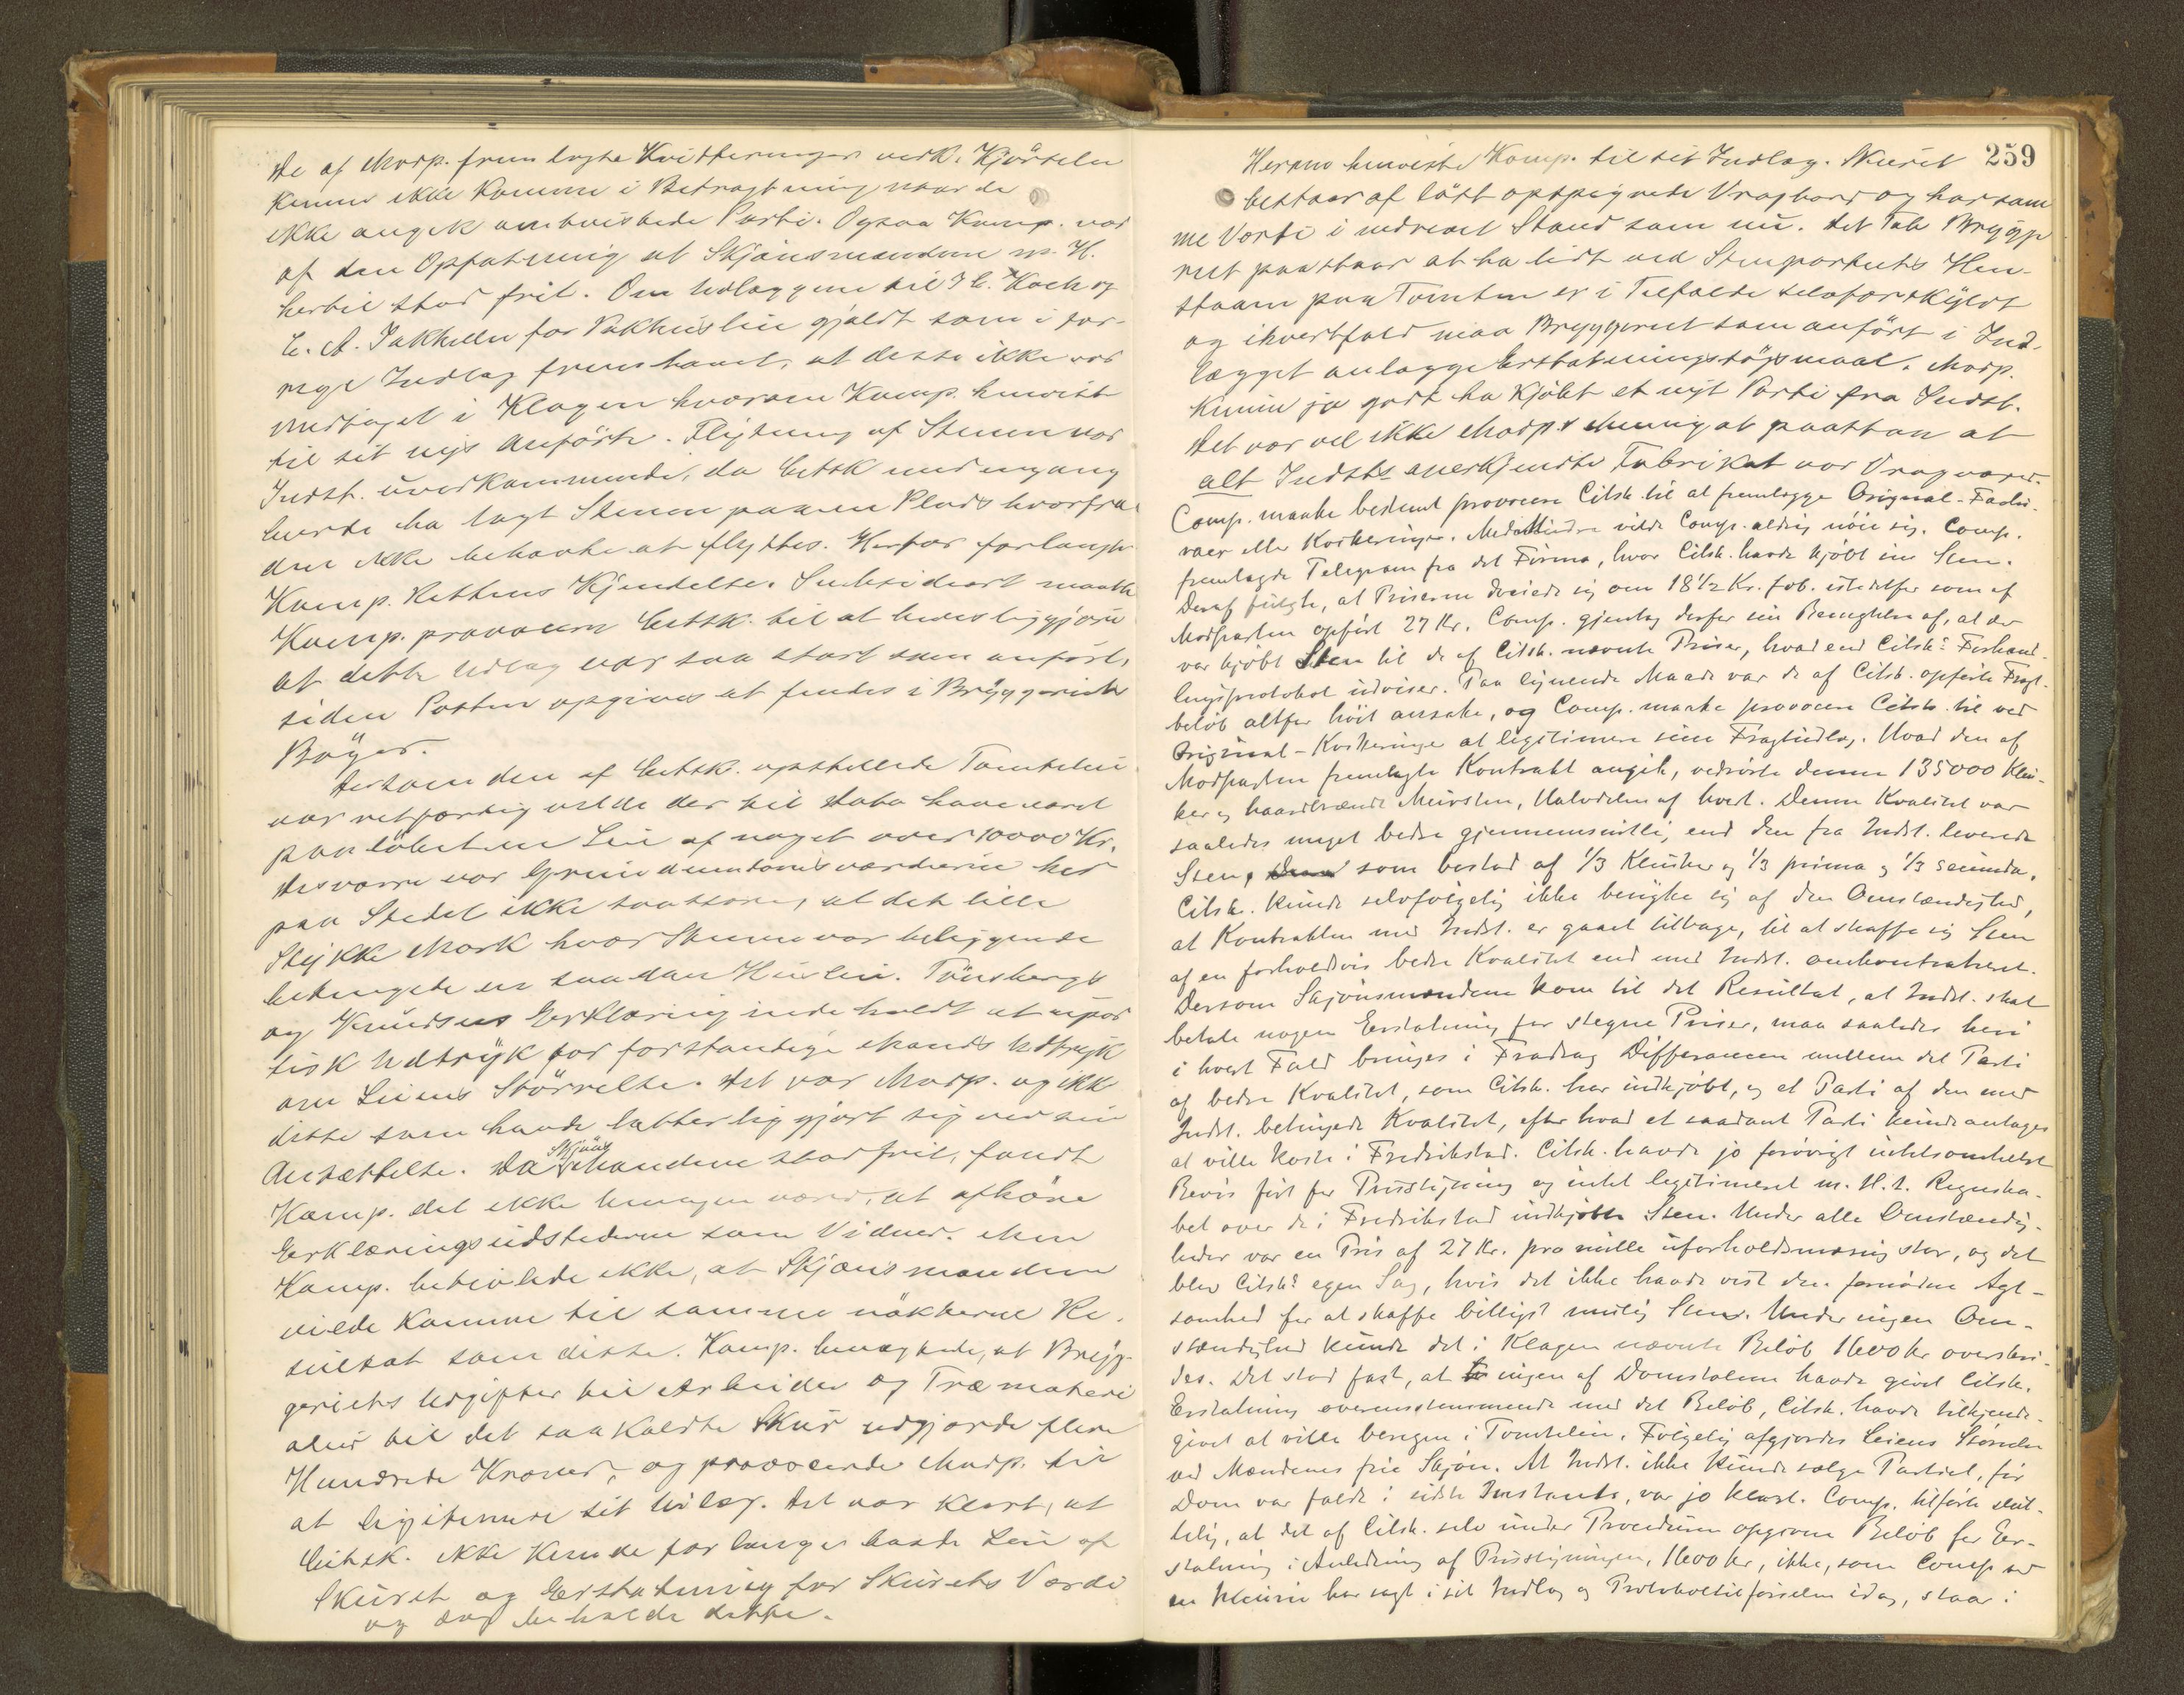 De af Modp. fremlagte Kvitteringer vedk. Kjørselen
kunne ikke komme i Betragtning naar de
ikke angik omtvistede Parti. Ogsaa Komp. var
af den Opfatning at Skjønsmændene m. H.
hertil stod frit. Om Udlæggene til I. C. Koch og
C. A. Jakhelln for Pakhusleie gjaldt som i for-
rige Indlæg fremhævet, at disse ikke var
medtaget i Klagen hvorom Komp. henviste
til sit nys Anførte. Flytning af Stenen var
Indst. uvedkommende, da Citsk med engang
burde ha lagt Stenen paa en Plads hvorfra
den ikke behøvte at flyttes. Herfor forlangte
Komp. Rettens Kjendelse. Subsidiært maatte
Komp. provocere Citsk. til at beviseliggjøre
at dette Udlæg var saa stort som anført,
siden Posten opgives at findes i Bryggeriets
Bøger.
Dersom den af Citsk. opstillede Tomteleie
var retfærdig vilde der til Dato have været
paaløbet en Leie af noget over 10000 Kr.
Desværre var Grundeiendomsværdierne her
paa Stedet ikke saa store, at det lille
Stykke Mark hvor Stenene var beliggende
betingede en saadan Husleie. Tønsbergs
og Knudsens Erklæring indeholdt et upar
tisk Udtryk for forstandige Mænds Udtryk
om Leiens Størrelse. Det var Modp. og ikke
disse som havde latterliggjort sig ved sin
Ansættelse. Da Skjønsmændene stod frit, fandt
Komp. det ikke umagen værd, at afhøre
Erklæringsudstederne som Vidner. Men
Komp. betvivlede ikke, at Skjønsmændene
vilde komme til samme nøkterne Re-
sultat som disse. Komp. benægtede, at Bryg-
geriets Udgifter til Arbeider og Træmateri
aler til det saakaldte Skur udgjorde flere
Hundrede Kroner, og provocerede Modp. til
at legitimere sit Udlæg. Det var klart, at
Citsk. ikke kunde forlange baade Leie af
Skuret og Erstatning for Skurets Værdi
og dog beholde dette.
259
Herom henviste Komp. til sit Indlæg. Skuret
bestaar af løst opspigrede Vragbord og har sam
me Værdi i nedrevet Stand som nu. Det Tab Brygge
riet paastaar at ha lidt ved Stenpartiets Hen-
staaen paa Tomten er i Tilfælde selvforskyldt
og ihvertfald maa Bryggeriet som anført i Ind-
lægget anlægge Erstatningssøgsmaal. Modp.
kunde jo godt ha kjøbt et nyt Parti fra Indst.
Det var vel ikke Modp's Mening at paastaa at
alt Indsts anerkjendte Fabrikat var Vragvare.
Comp. maatte bestemt provocere Citsk. til at fremlægge Original-Faktu-
raer eller Kvitteringer. Med Mindre vilde Comp. aldrig nøie sig. Comp.
fremlagde Telegram fra det Firma, hvor Citsk. havde kjøbt sin Sten.
Deraf fulgte, at Priserne dreiede sig om 18 1/2 Kr. fob. istedetfor som af
Modparten opført 27 Kr. Comp. gjentog derfor sin Benegtelse af, at der
var kjøbt Sten til de af Citsk. nævnte Priser, hvad end Citsk's Forhand-
lingsprotokol udviser. Paa lignende Maade var de af Citsk. opførte Fragt-
beløb altfor høit ansatte, og Comp. maatte provocere Citsk. til ved
Original-Kvitteringer at legitimere sine Fragtudlæg. Hvad den af
Modparten fremlagte Kontrakt angik, vedrørte denne 135000 Klin-
ker og haardbrændt Mursten, Halvdelen af hvert. Denne Kvalitet var
saaledes meget bedre gjennemsnitlig, end den fra Indst. leverede
Sten, som bestod af 1/3 Klinker og 1/3 prima og 1/3 secunda.
Citsk. kunde selvfølgelig ikke benytte sig af den Omstændighed,
at Kontrakten med Indst. er gaaet tilbage, til at skaffe sig Sten
af en forholdsvis bedre Kvalitet end med Indst. omkontraheret.
Dersom Skjønsmændene kom til det Resultat, at Indst. skal
betale nogen Erstatning for stegne Priser, maa saaledes heri
i hvert Fald bringes i Fradrag Differancen mellem det Parti
af bedre Kvalitet, som Citsk. har indkjøbt, og et Parti af den med
Indst. betingede Kvalitet, efter hvad et saadant Parti kunde antages
at ville koste i Fredrikstad. Citsk. havde jo forøvrigt intetsomhelst
Bevis ført for Prisstigning og intet legitimeret m. H. t. Regnska-
bet over de i Fredrikstad indkjøbte Sten. Under alle Omstændig-
heder var en Pris af 27 Kr. pro mille uforholdsmæssig stor, og det
blev Citsk's egen Sag, hvis det ikke havde vist den fornødne Agt-
somhed for at skaffe billigst mulig Sten. Under ingen Om-
stændighed kunde det i Klagen nævnte Beløb 1600 kr overskri-
des. Det stod fast, at ingen af Domstolene havde givet Citsk.
Erstatning overensstemmende med det Beløb, Citsk. havde tilkjende-
givet at ville beregne i Tomteleie. Følgelig afgjordes Leiens Størrelse
ved Mændenes frie Skjøn. At Indst. ikke kunde sælge Partiet, før
Dom var faldt i sidste Instants, var jo klart. Comp. tilførte slut-
telig, at det af Citsk. selv under Proceduren opgivne Beløb for Er-
statning i Anledning af Prisstigningen, 1600 kr, ikke, som Comp ved
en Incurie har sagt i sit Indlæg og Protokoltilførselen idag, staar i